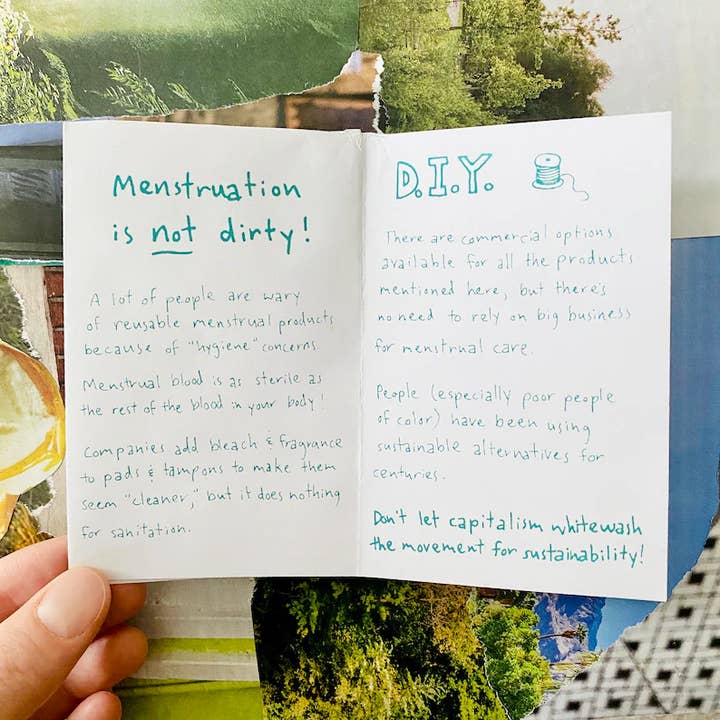 Menstruation
is not dirty!
A lot of people are wary
of reusable menstrual products
because of "hygiene" concerns.
Menstrual blood is as sterile as
the rest of the blood in your body!
Companies add bleach & fragrance
to pads & tampons to make them
seem "cleaner," but it does nothing
for sanitation.
D.I.Y.
There are commercial options
available for all the products
mentioned here, but there's
no need to rely on big business
for menstrual care.
People (especially poor people
of color) have been using
sustainable alternatives for
centuries.
Don't let capitalism whitewash
the movement for sustainability!